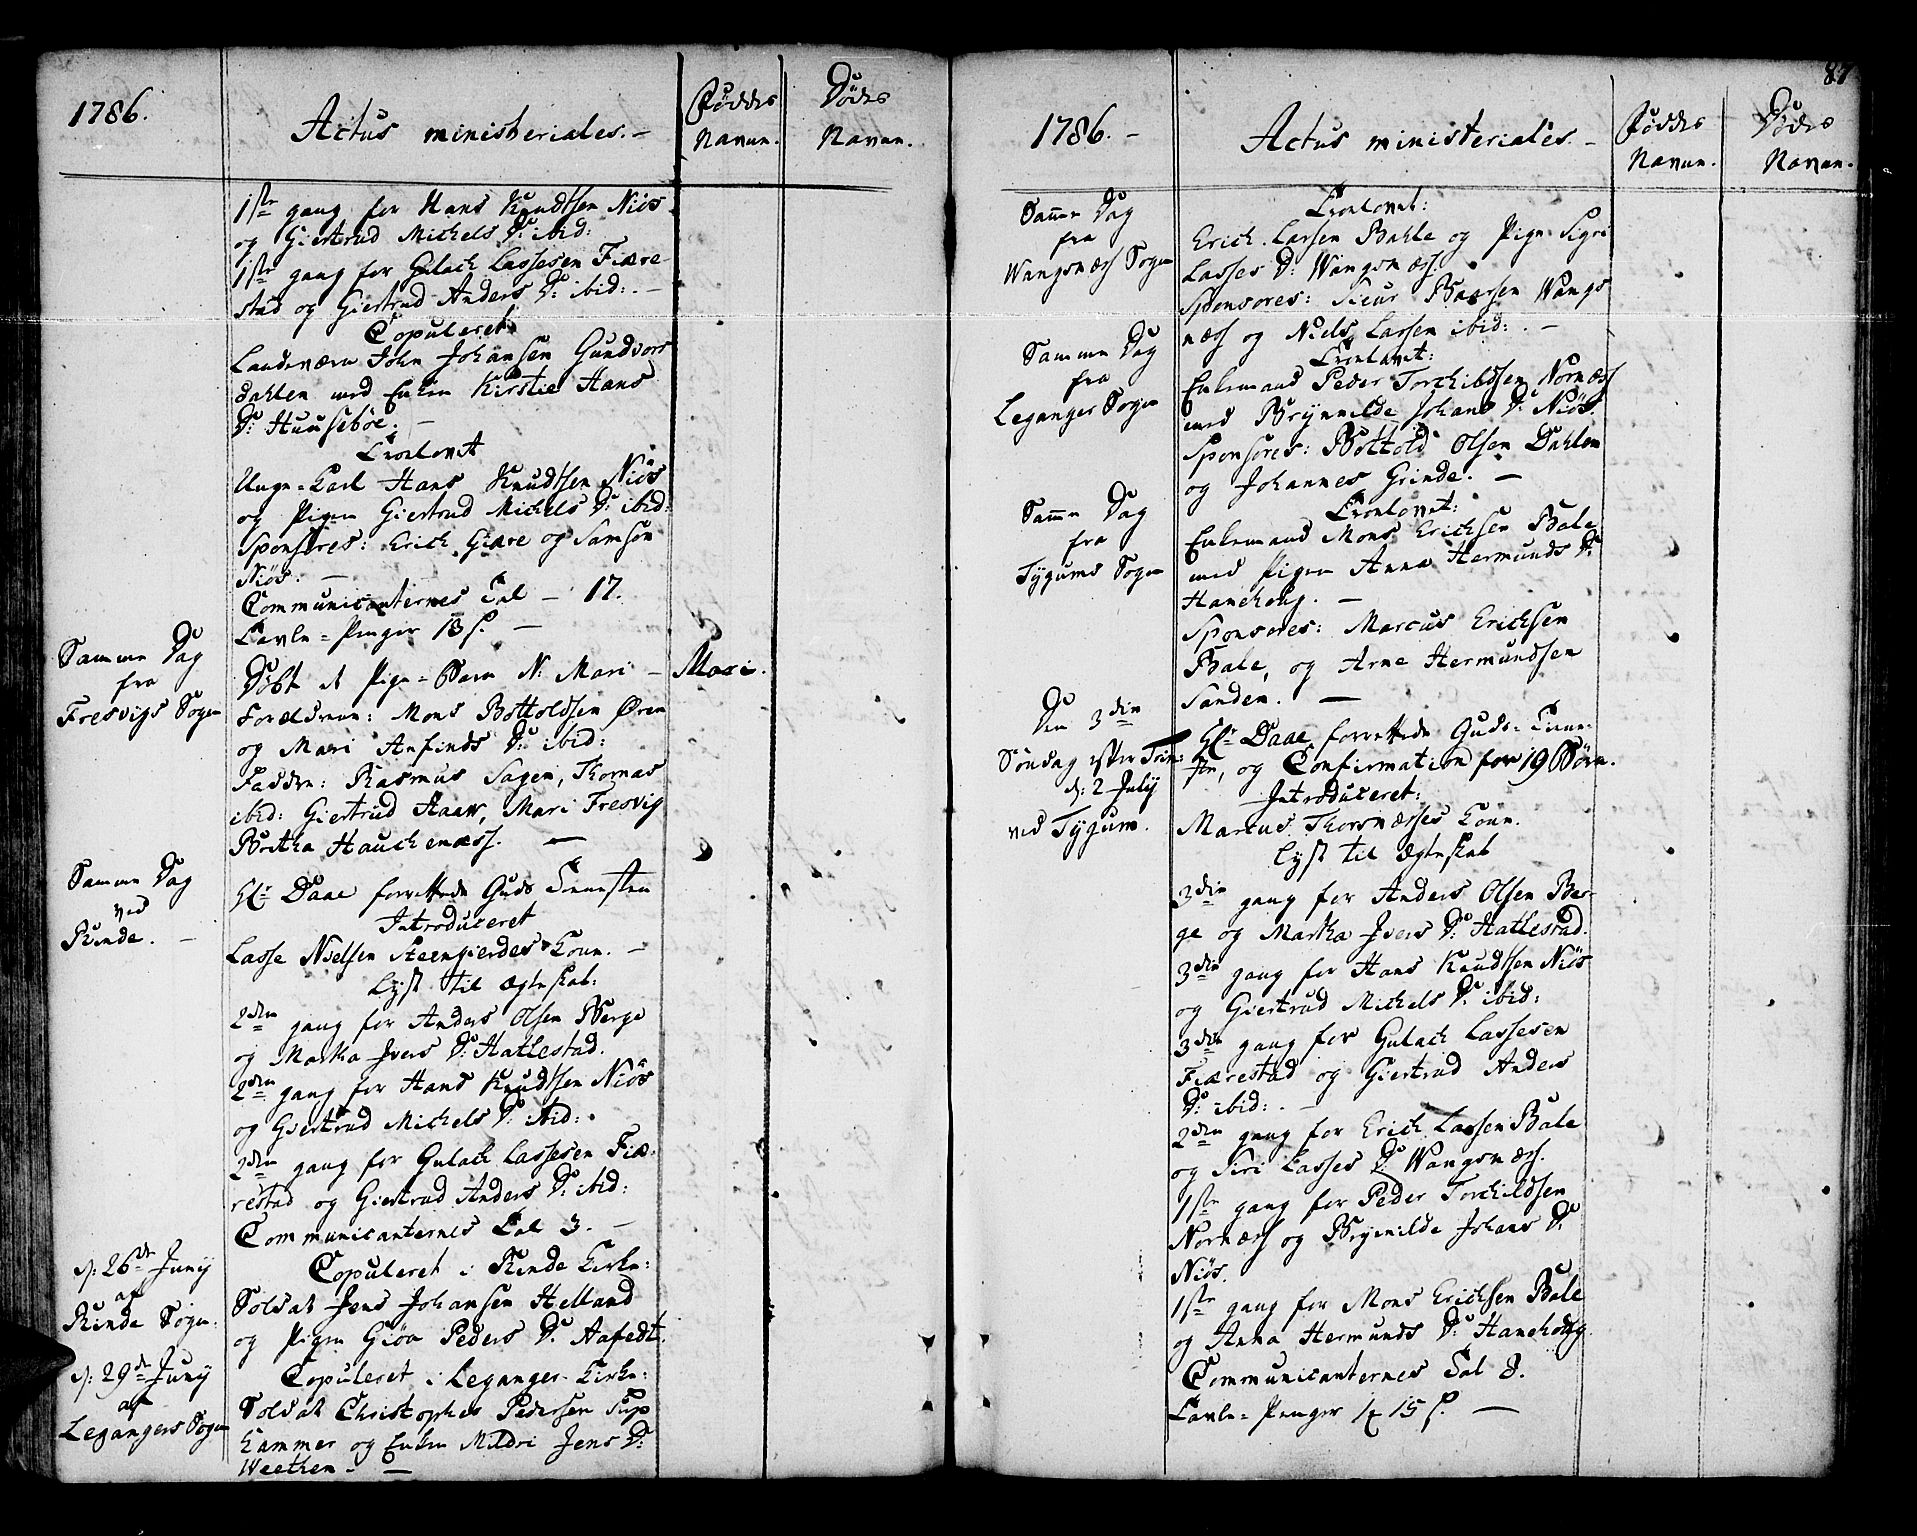 1786.
Actus ministeriales.
Föddes
Navne.
Dödes
Navne.
1ste gang for Hans Knudtsen Niös
og Giertrud Michels D: ibid:
1ste gang for Gulack Lassesen Fiære-
stad og Giertrud Anders D: ibid: . -
Copuleret
Landeværn John Johansen Gundvors
dahlen med Enken Kirstie Hans
D: Huusebøe. -
Trolovet
Unge-Karl Hans Knudtsen Niös
og Pigen Giertrud Michels D: ibid:
Sponsores: Erich Giære og Samson
Niös. -
Communicanternes Tal - 17.
Tavle-Penger 18 s. -
Samme Dag
fra
Fresvigs Sogn
Döbt et Pige-Barn N: Mari -
Mari.
Forældrene: Mons Bottoldsen Øren
og Mari Anfinds D: ibid:
Faddre: Rasmus Sagen, Thomas
ibid: Giertrud Haaw, Mari Fresvig
Britha Hauchenæss. -
Samme Dag
ved
Rinde. -
Hr Daae forrettede Guds Tienesten
Introduceret
Lasse Nielsen Steengierdes Kone. -
Lyst til Ægteskab:
2den gang for Anders Olsen Berge
og Martha Ivers D: Hatlestad.
2den gang for Hans Knudtsen Niös
og Giertrud Michels D: ibid: .
2den gang for Gulack Lassesen Fiæ-
restad og Giertrud Anders D: ibid:
Communicanternes Tal 3. -
d: 26de Juny
af
Rinde Sogn.
Copuleret i Rinde Kirke:
Soldat Jens Johansen Helland
og Pigen Giöa Peders D: Aafedt.
d: 29de Juny
af
Legangers Sogn
Copuleret i Leganger Kirke:
Soldat Christopher Pedersen Sup
hammer og Enken Mildri Jens D:
Weethen. -
87
1786. -
Actus ministeriales. -
Föddes
Navne.
Dödes
Navne.
Samme Dag
fra
Wangsnæss Sogn
Trolovet:
Erich Larsen Bahle og Pige Sigri
Lasses D: Wangsnæss.
Sponsores: Siur Baarsen Wangs
næss og Niels Lassen ibid: . -
Samme Dag
fra
Leganger Sogn
Trolovet:
Enkemand Peder Torchildsen Nornæss
med Brynnilde Johans D: Niös.
Sponsores: Bottold Olsen Dahlen
og Johannes Grinde. -
Samme Dag
fra
Tygums Sogn
Trolovet:
Enkemand Mons Erichsen Bale
med Pigen Anna Hermunds D:
Hanehoug. -
Sponsores: Marcus Erichsen
Bale, og Arne Hermundsen
Sanden. -
Den 3die
Söndag efter Trin:
d: 2 July
ved Tygum.
Hr Daae forrettede Guds-Tiene-
ste, og Confirmation for 19 Börn.
Introduceret:
Marcus Thorsnæsses Kone.
Lyst til Ægteskab
3die gang for Anders Olsen Ber-
ge og Martha Ivers D: Hatlestad.
3die gang for Hans Knudtsen Niös
og Giertrud Michels D: ibid:
3die gang for Gulack Lassesen
Fiærestad og Giertrud Anders
D: ibid: . -
2den gang for Erich Lassen Bale
og Siri Lasses D: Wangsnæss.
1ste gang for Peder Torchildsen
Nornæss og Brynnilde Johans D:
Niös.
1ste gang for Mons Erichsen Bale
og Anna Hermunds D: Hanehoug.
Communicanternes Tal 8.
Tavle-Penger 1 15 s. -